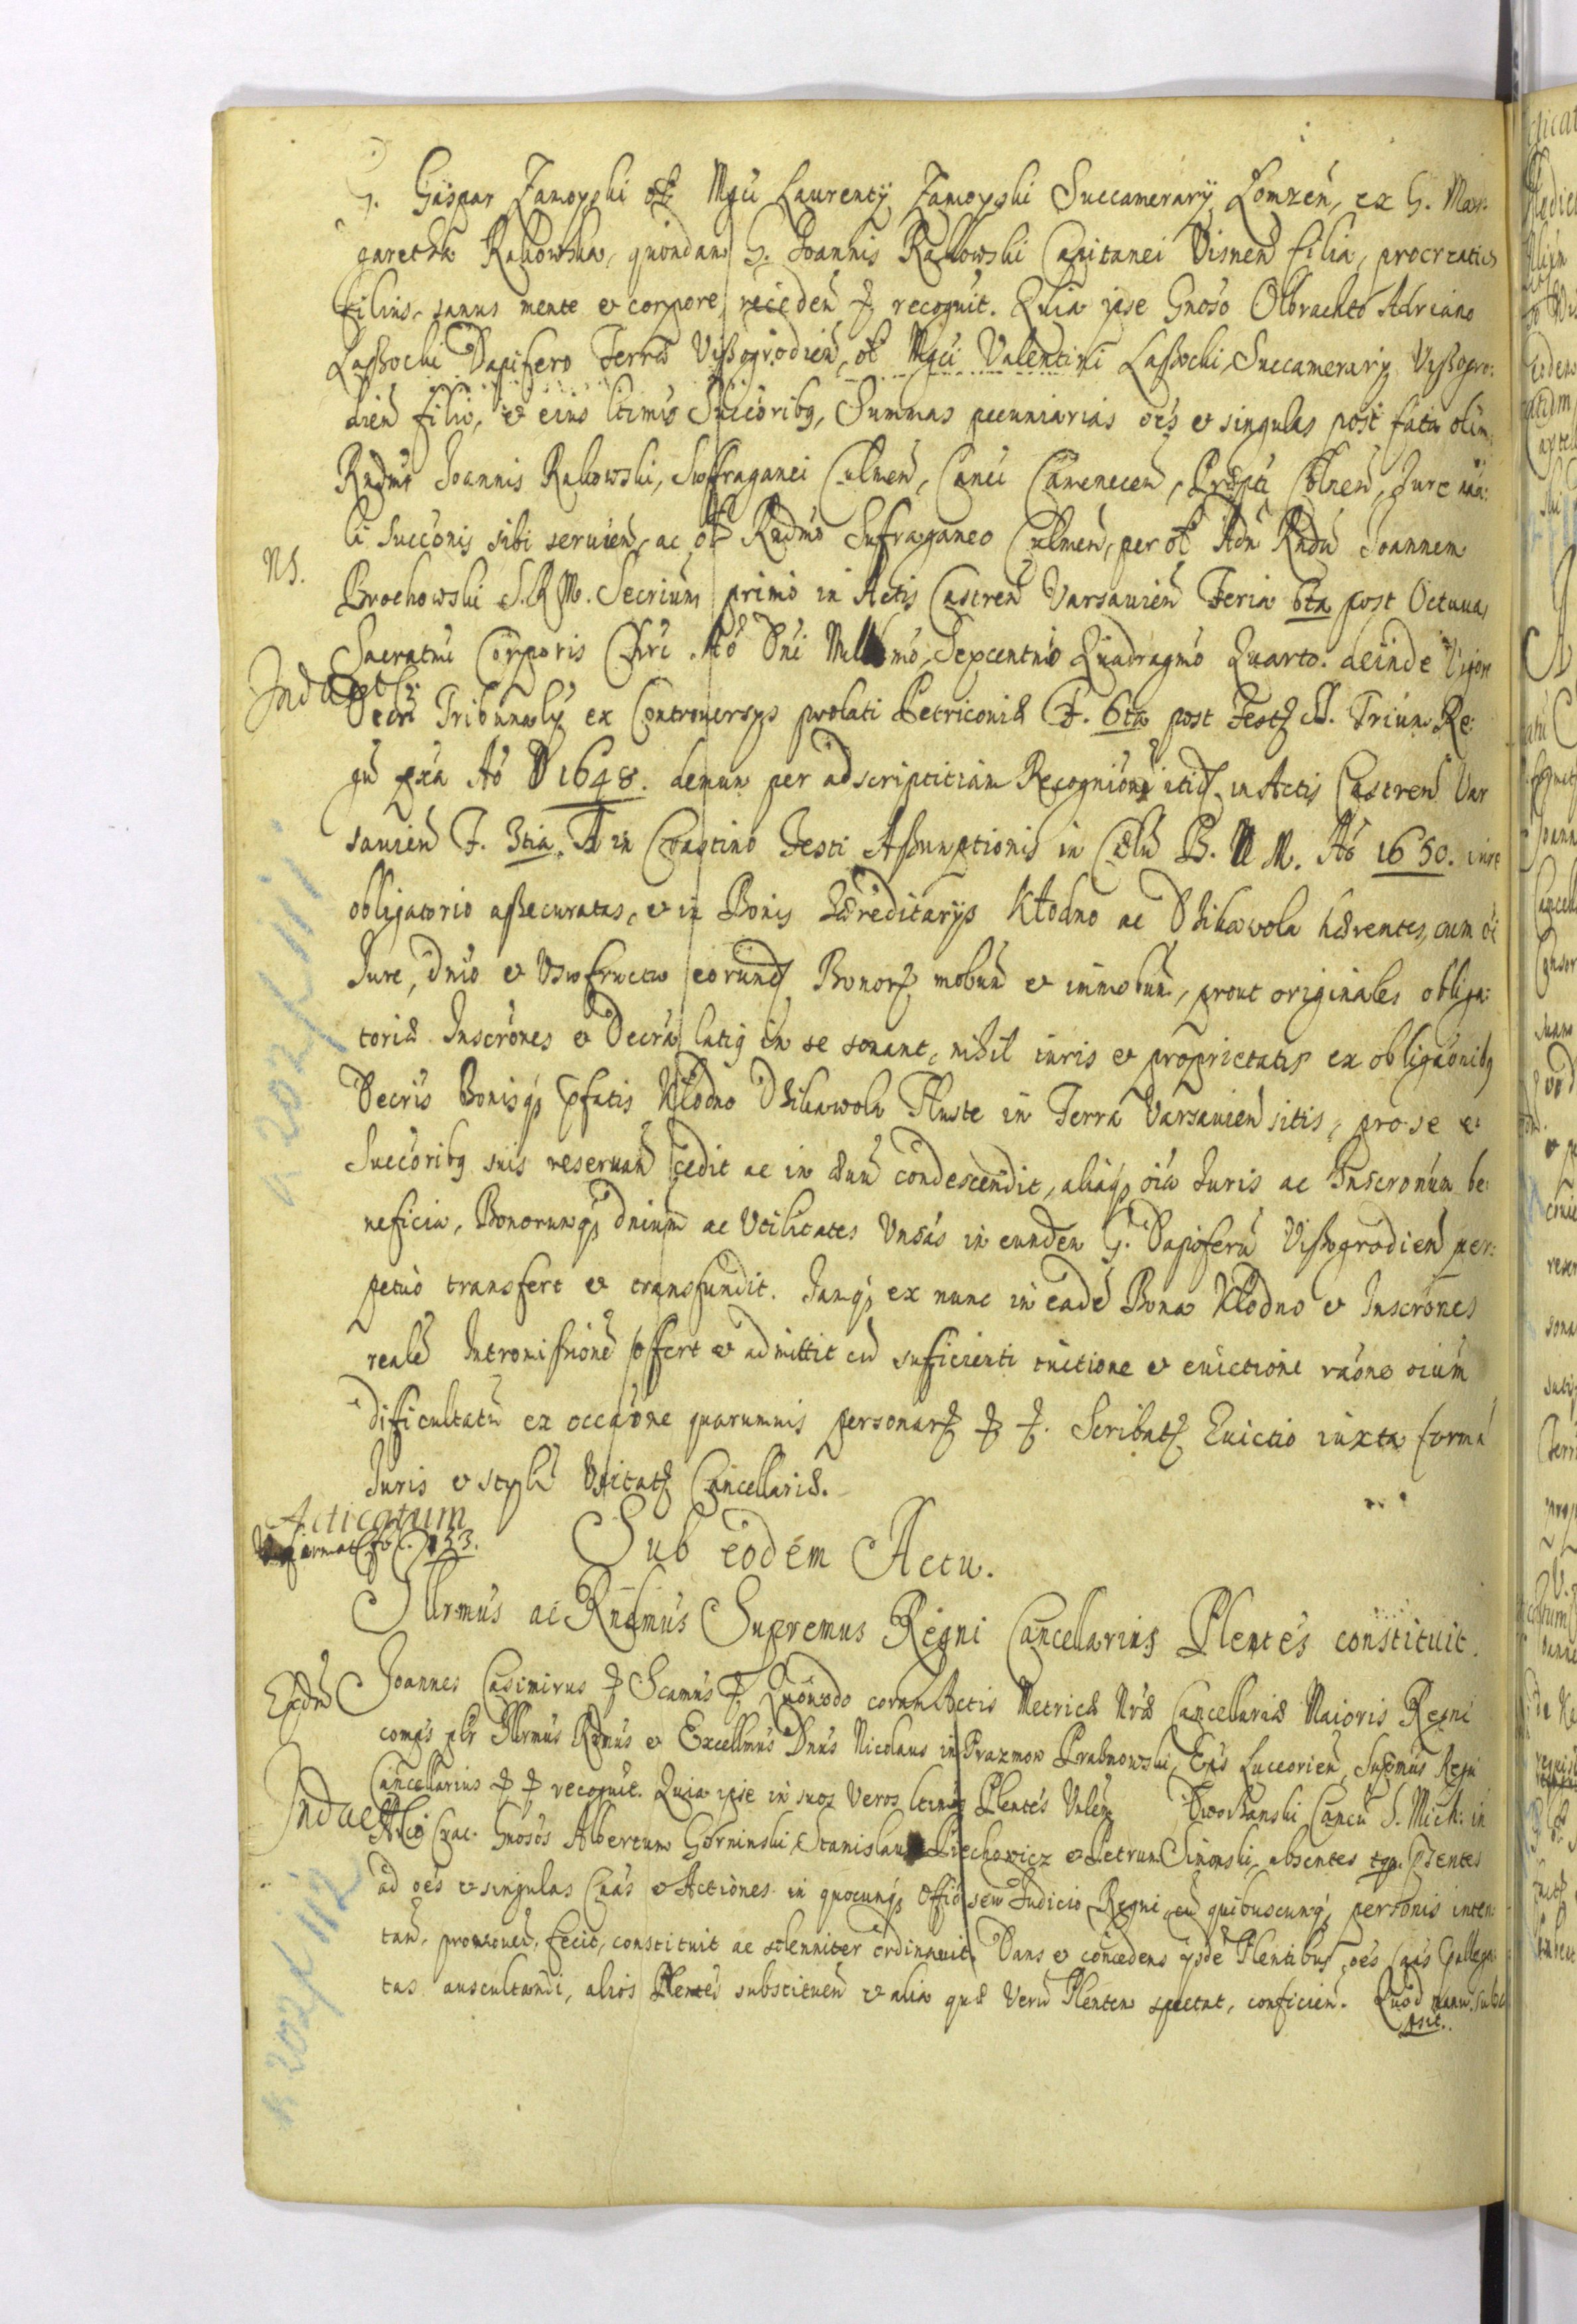 G. Gaspar Zamoyski olim Mgci Laurentij Zamoyski Succamerarij Łomzen, ex G. Mar:
garetha Rakowska, quondam G. Joannis Rakowski Capitanei Visnen filia, procreatus
filius, sanus mente et corpore, receden recognit. Quia ipse Gnoso Olbrachto Adriano
Lassocki Dapifero Terræ Vissogrodien, ol Mgci Valentini Lassocki Succamerarij Vissogro:
dien filio, et eius ltimis Succoribq, Summas pecuniarias oes et singulas post fata olim
Rndmi Joannis Rakowski, Suffraganei Culmen, Canci Camenecen, Præpti Colnen, Jure náá:
li succonis sibi seruien, ac ol Rndmo Sufraganeo Culmen, per ol Adm Rndu Joannem
NS.
Brochowski S.R.M. Secrium primo in Actis Castren Varsauien Feria 6ta post Octauas
Sacratmi Corporis Chri Ao Dni Millmo, Sexcentmo Quadragmo Quarto. deinde Vigore
Induct
Decri Tribunalij ex Controuersys prolati Petriconiæ F. 6ta post Festq SS. Trium Re:
gu pxa Ao D 1648. demum per adscriptitiam Recognione itid in Actis Castren Var
sauien F. 3tia in Crastino Festi Assumptionis in Cælu B. V M. Ao 1650. iure
obligatorio assecuratas, et in Bonis Hæreditarijs Kłodno ac Dzikawola hærentes, cum oi
Jure, dnio et Vsufructu eorund Bonorq mobiliu et immobiliu, prout originales obliga:
toriæ Inscrones et Decra latiq in se sonant, nihil iuris et proprietatis ex obligaonibq
Decris Bonisq pfatis Kłodno Dzikawola Tłuste in Terra Varsauien sitis, pro se et
Succoribq suis reseruan cedit ac in æuu condescendit, aliaq oia Juris ac Inscronum be:
neficia, Bonorumq dnium ac Vtilitates Vnsas in eundem G. Dapiferu Vissogrodien per:
petuo transfert et transfundit. Jamq ex nunc in eade Bona Kłodno et Inscrones
reale Intromissione offert et admittit cu suficienti tuitione et euictione raone oium
dificultatu ex occaone quarumuis personarq. Scribatq Euictio iuxta forma
Juris et styli Vsitatq Cancellariæ.
Acticatum
fol. 153.
Sub eodem Actu.
Illrmus ac Rndmus Supremus Regni Cancellarius Plentes constituit.
Expdm
Joannes Casimirus Scamus Quomodo coram Actis Metricæ Nræ Cancellariæ Maioris Regni
compns plr Illrmus Rdmus et Excellmus Dnus Nicolaus in Prazmow Prazmowski, Eps Luceorien, Supmus Regni
Cancellarius recognit. Quia ipse in suos Veros ltimos Plentes Valen Canci S. Mich: in
Induct
Arce Crac. Gnosos Albertum Gorninski, Stanislaum Piechowicz et Petrum absentes tqn. Pntes
ad oes et singulas Cas et Actiones in quocunq Offio seu Judicio Regni cu quibuscunq personis inten:
tan, promouen, fecit, constituit ac solenniter ordinauit. Dans et concedens ijsde Plentibus oes Cas allega:
tas auscultandi, alios Plentes substituen et alia quæ Veru Plentem spectat, conficien. Quod manu subs
psit.
k 202/111
k 202/112